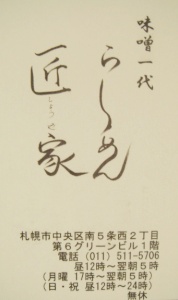 味噌一代
らーめん
匠家
しょうや
札幌市中央区南5条西2丁目
第6グリーンビル1階
電話 (011) 511-5706
昼12時〜翌朝5時
(月曜 17時〜翌朝5時)
(日・祝 昼12時〜24時)
無休